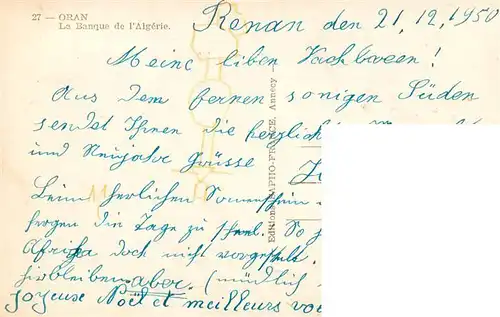 27 — ORAN
La Banque de l'Algérie.
Renan den 21, 12, 1950
Meine liben Nachbaren!
Aus dem fernen sonigen Süden
sendet Ihnen die herzlichs
und Neujahr Grüsse
Beim herlichen Sonnenschein
die Tage zu So
Afrika doch nicht vorgestelt.
hirbleiben aber. (mündlich
joyeuse Noël et meilleurs voe
Editions RAPHO-FRANCE, Annecy —